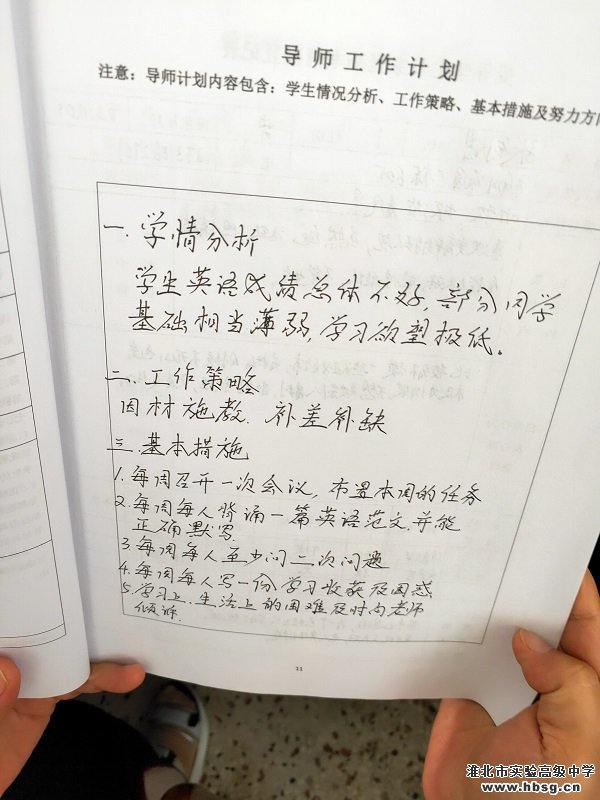 导师工作计划
注意：导师计划内容包含：学生情况分析、工作策略、基本措施及努力方向
一、学情分析
学生英语成绩总体不好，部分同学
基础相当薄弱，学习欲望极低。
二、工作策略
因材施教、补差补缺
三、基本措施
1. 每周召开一次会议，布置本周的任务
2. 每周每人背诵一篇英语范文，并能
正确默写.
3. 每周每人至少问二次问题
4. 每周每人写一份学习收获及困惑
5. 学习上、生活上的困难及时向老师
倾诉.
11
淮北市实验高级中学
www.hbsg.cn